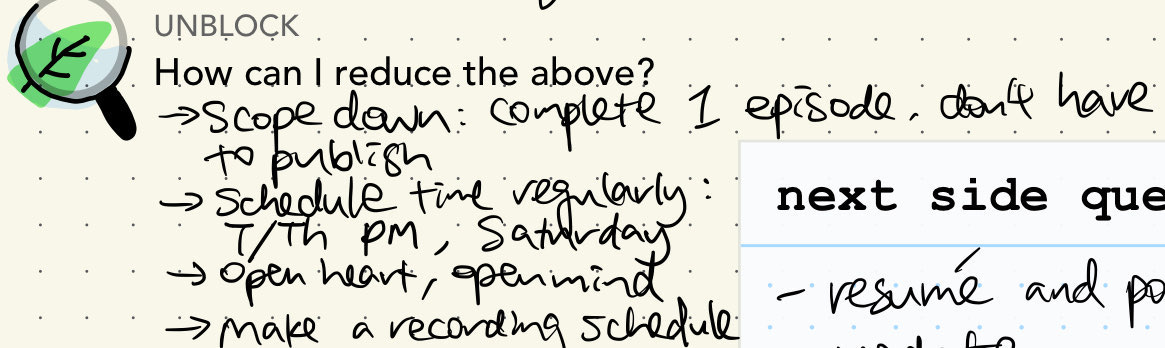 UNBLOCK
How can I reduce the above?
→ Scope down: complete 1 episode, don't have
to publish
→ Schedule time regularly:
T/Th PM, Saturday
→ open heart, open mind
→ make a recording schedule
next side que
- resumé and po
update